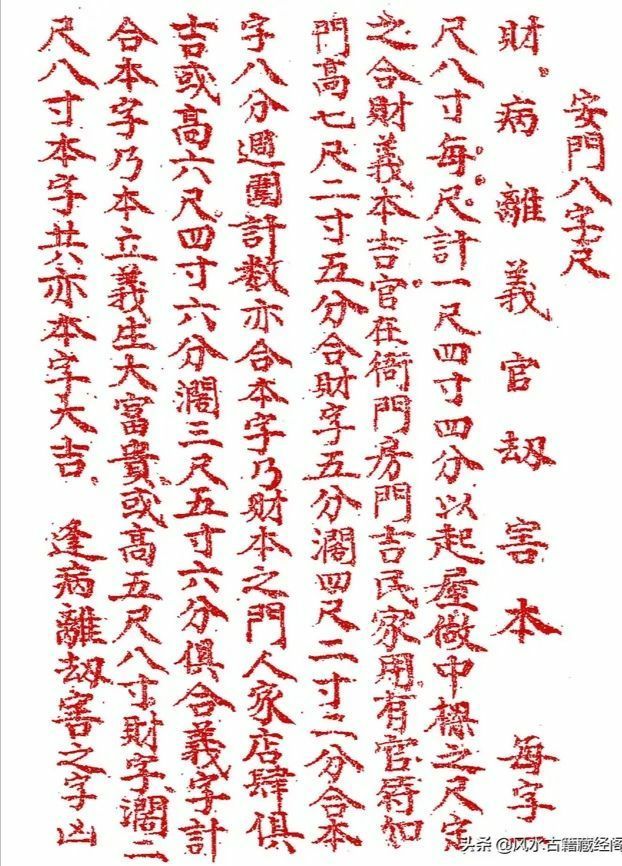 安門八字尺
財。病離義官劫害本 每字
尺八寸每。尺。計一尺四寸四分以起屋做中樑之尺定
之合財義本吉。官在衙門房門吉民家用有官符如
門高七尺二寸五分合財字五分濶四尺二寸二分合本
字八分週圍計数亦合本字乃財本之門人家店肆俱
吉或高六尺四寸六分濶三尺五寸六分俱合義字計
合本字乃本立義生大富貴或高五尺八寸財字濶二
尺八寸本字共亦本字大吉、逢病離劫害之字凶
头条@风水古籍藏经阁